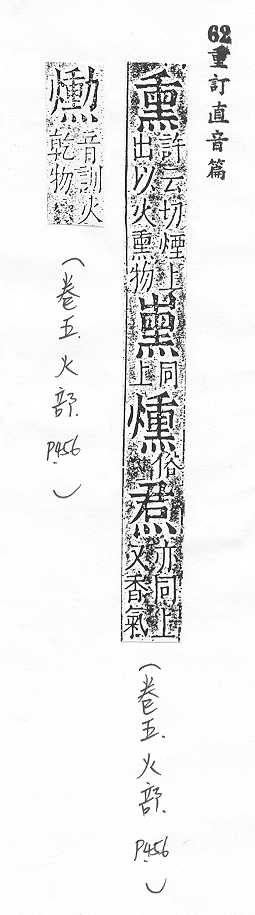 62重訂直音篇
熏許云切煙上出以火熏物 同上燻俗焄亦同上又香氣
(卷五.火部. P.456)
音訓火乾物
(卷五.火部. P.456)